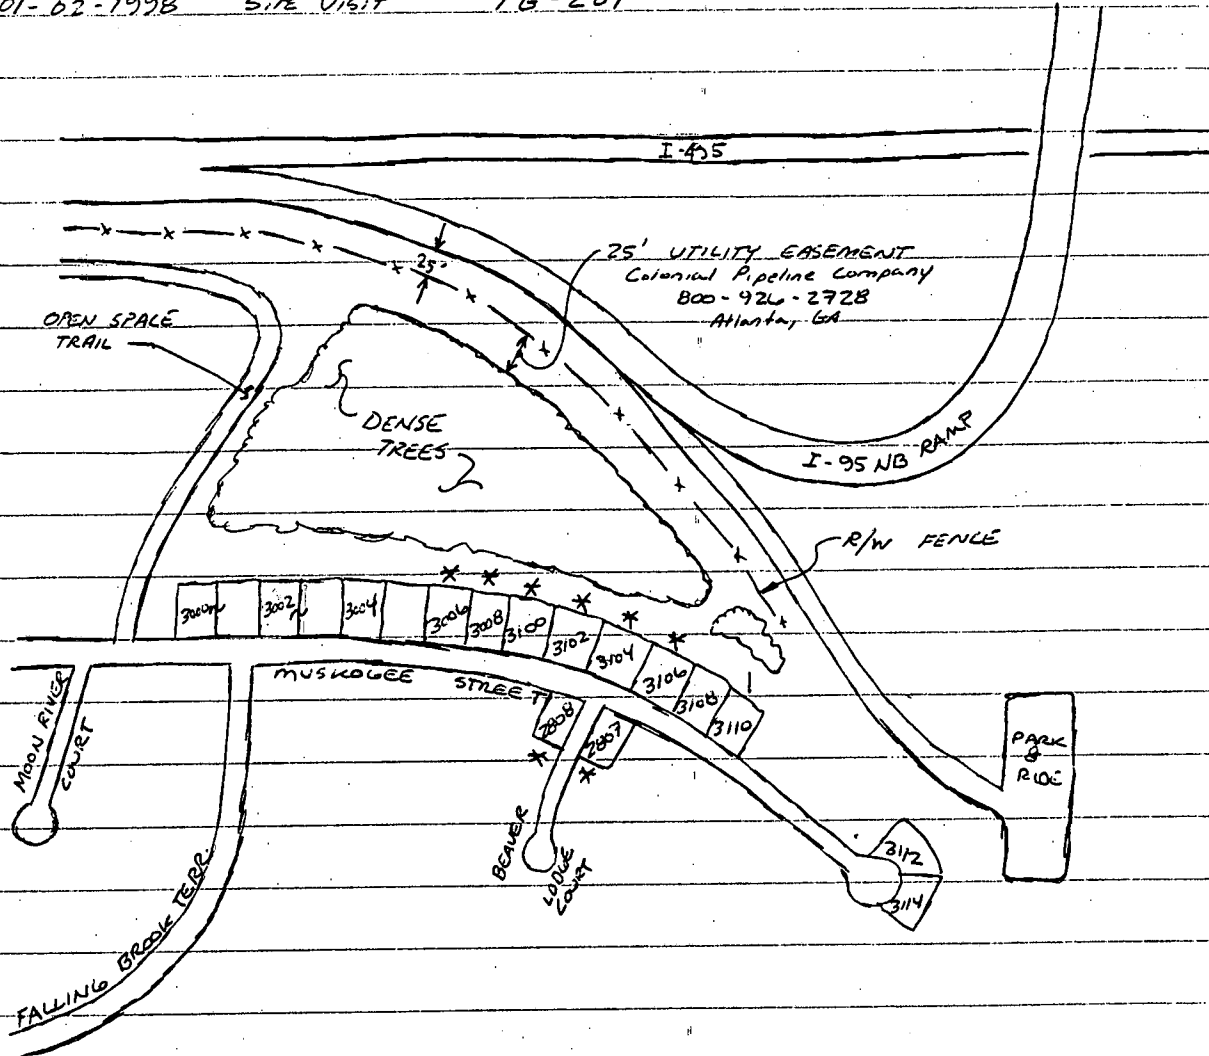 01-02-1998 SITE VISIT PG-201
I-495
25'
25' UTILITY EASEMENT
Colonial Pipeline Company
800-926-2728
Atlanta, GA
OPEN SPACE
TRAIL
DENSE
TREES
I-95 NB RAMP
R/W FENCE
3000
3002
3004
3006
3008
3100
3102
3104
3106
3108
3110
MUSKOGEE STREET
2808
2807
MOON RIVER
COURT
PARK
&
RIDE
BEAVER
LODGE
COURT
3112
3114
FALLING BROOK TERR.